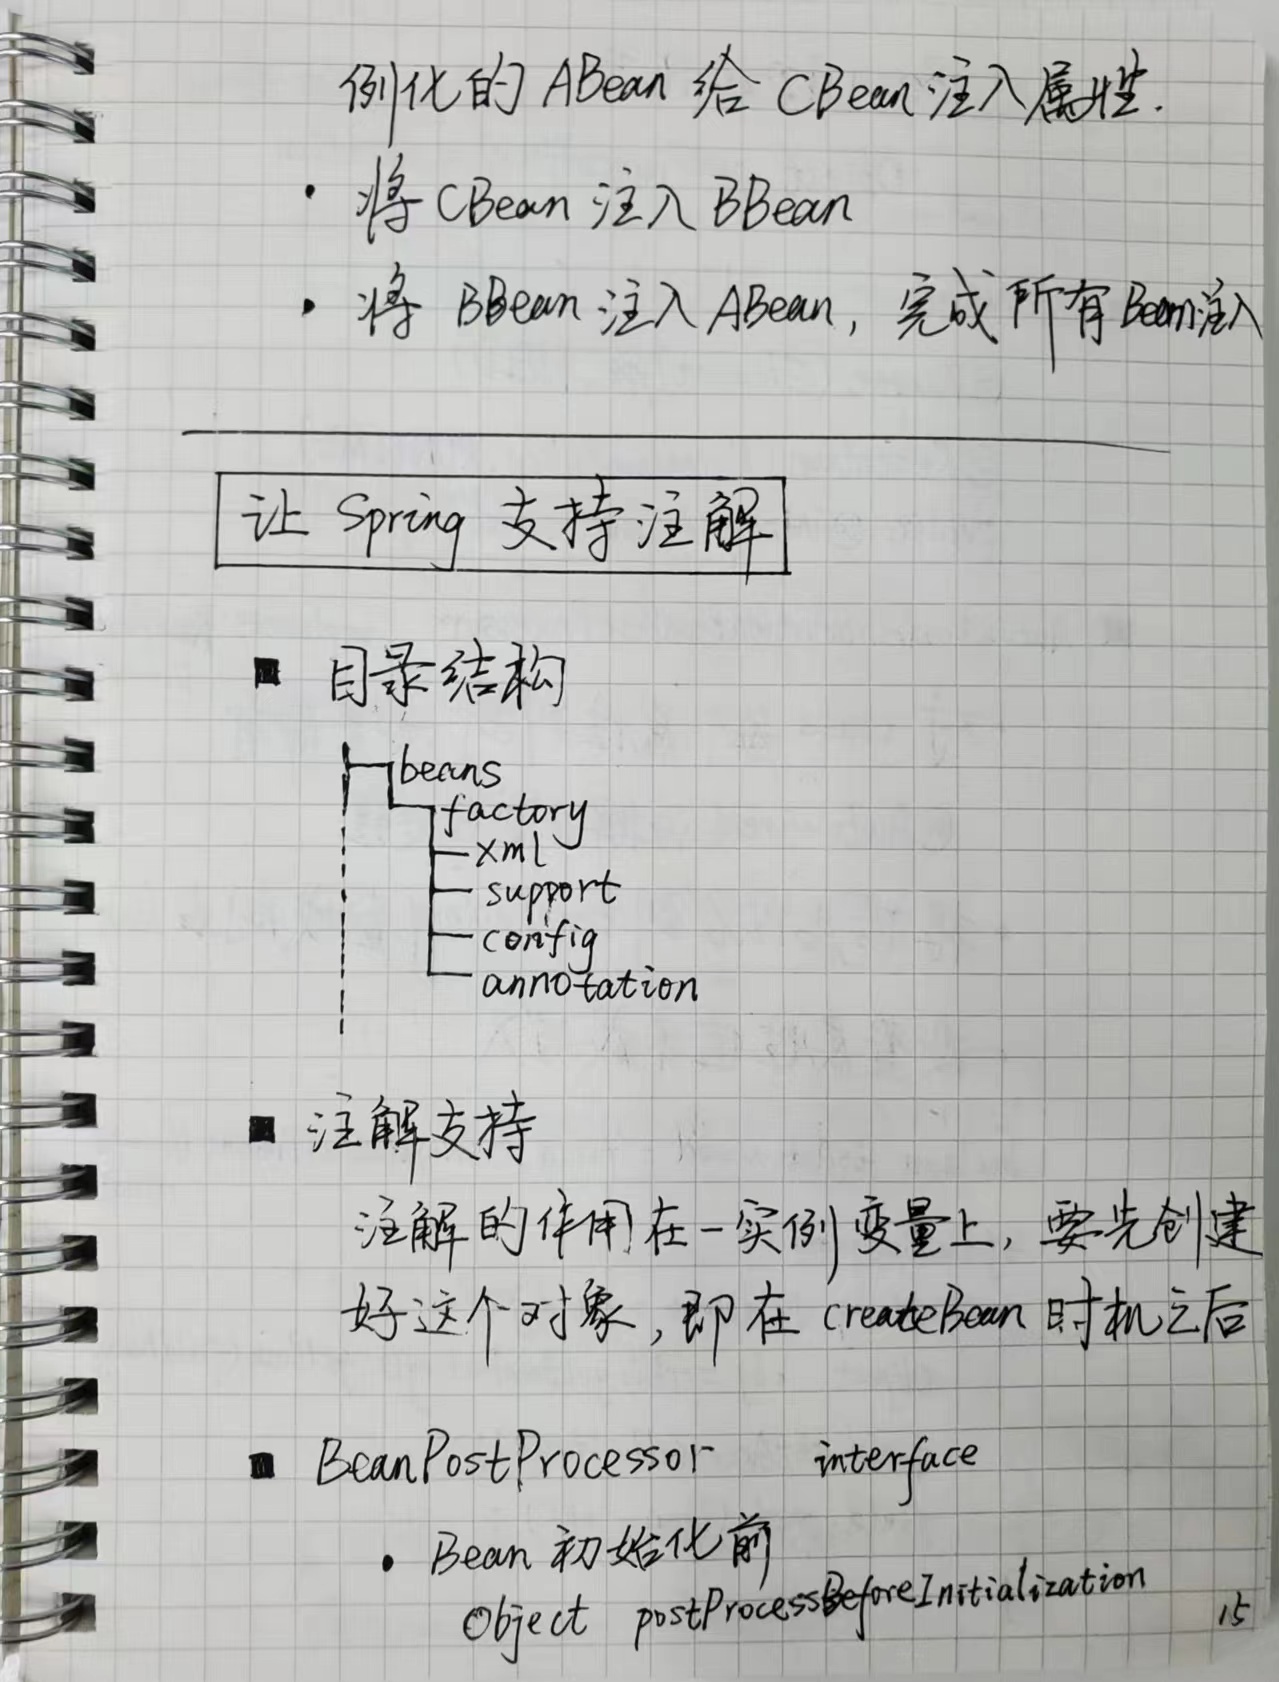 例化的 ABean 给 CBean 注入属性.
· 将 CBean 注入 BBean
· 将 BBean 注入 ABean, 完成所有 Bean注入
让 Spring 支持注解
■ 目录结构
beans
factory
xml
support
config
annotation
■ 注解支持
注解的作用在一实例变量上, 要先创建
好这个对象, 即在 createBean 时机之后
■ BeanPostProcessor interface
· Bean 初始化前
Object postProcessBeforeInitialization
15